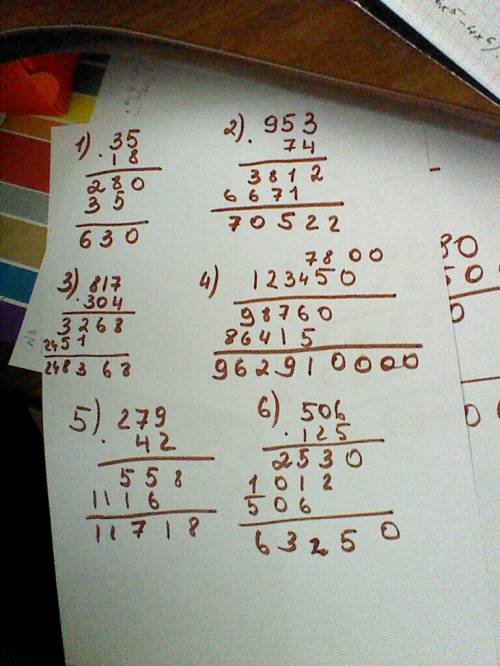 1) 35
· 18
280
35
630
2) 953
· 74
3812
6671
70522
3) 817
· 304
3268
2451
248368
4) 7800
123450
98760
86415
962910000
5) 279
· 42
558
1116
11718
6) 506
· 125
2530
1012
506
63250